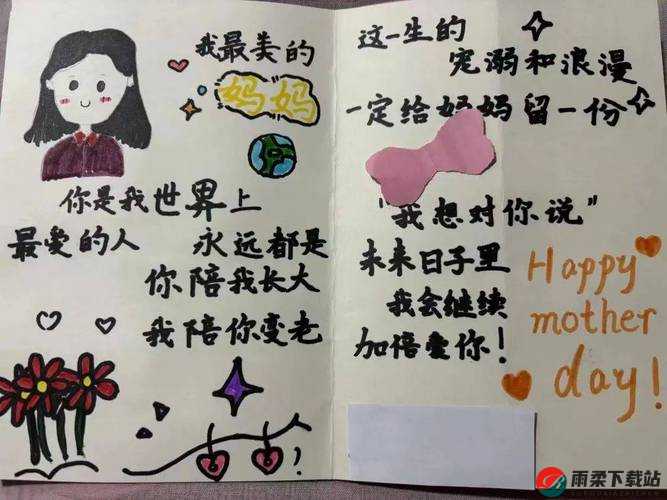 我最美的
妈妈
你是我世界上
最爱的人 永远都是
你陪我长大
我陪你变老
这一生的
宠溺和浪漫
一定给妈妈留一份
"我想对你说"
未来日子里
我会继续
加倍爱你!
Happy
mother
day!
雨柔下载站